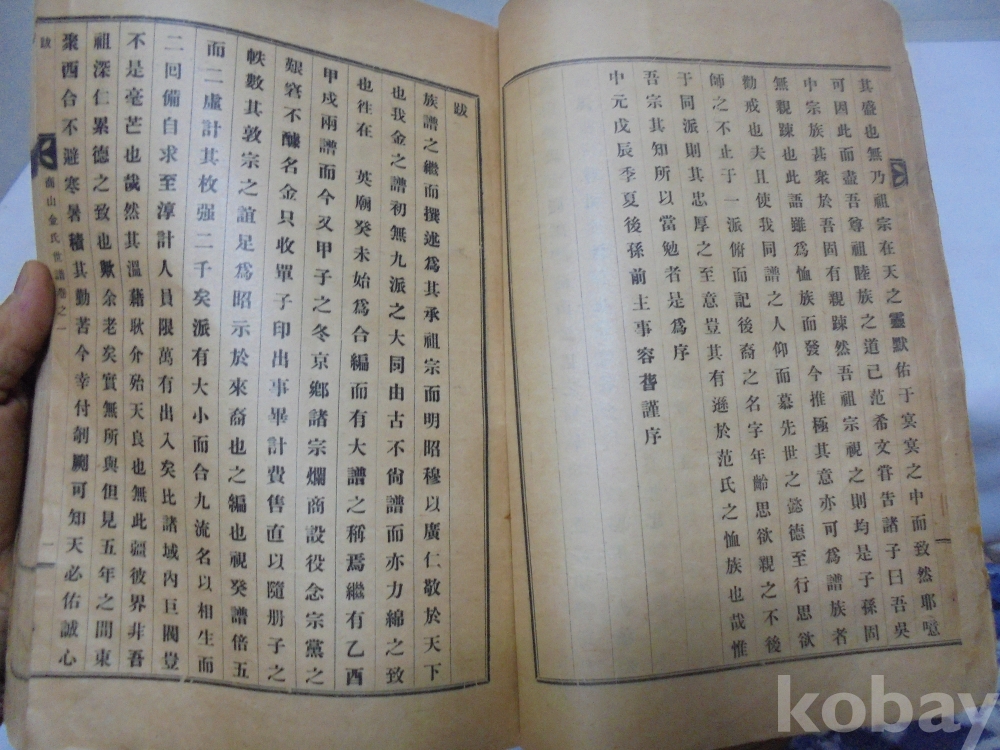 其盛也無乃祖宗在天之靈默佑于冥冥之中而致然耶噫
可因此而盡吾尊祖睦族之道已范希文甞告諸子曰吾吳
中宗族甚衆於吾固有親踈然吾祖宗視之則均是子孫固
無親踈也此語雖爲恤族而發今推極其意亦可爲譜族者
勸戒也夫且使我同譜之人仰而慕先世之懿德至行思欲
師之不止于一派俯而記後裔之名字年齡思欲親之不後
于同派則其忠厚之至意豈其有遜於范氏之恤族也哉惟
吾宗其知所以當勉者是爲序
中元戊辰季夏後孫前主事容 謹序
跋
族譜之繼而撰述爲其承祖宗而明昭穆以廣仁敬於天下
也我金之譜初無九派之大同由古不尙譜而亦力綿之致
也徃在 英廟癸未始爲合編而有大譜之稱焉繼有乙酉
甲戍兩譜而今又甲子之冬京鄉諸宗爛商設役念宗黨之
艱窘不醵名金只收單子印出事畢計費售直以隨册子之
帙數其敦宗之誼足爲昭示於來裔也之編也視癸譜倍五
而二虛計其枚强二千矣派有大小而合九流名以相生而
二回備自求至淳計人員限萬有出入矣比諸域內巨閥豈
不是毫芒也哉然其溫藉耿介殆天良也無此疆彼界非吾
祖深仁累德之致也歟余老矣實無所與但見五年之間東
聚西合不避寒暑積其勤苦今幸付剞劂可知天必佑誠心
跋
商山金氏世譜卷之一
一
kobay